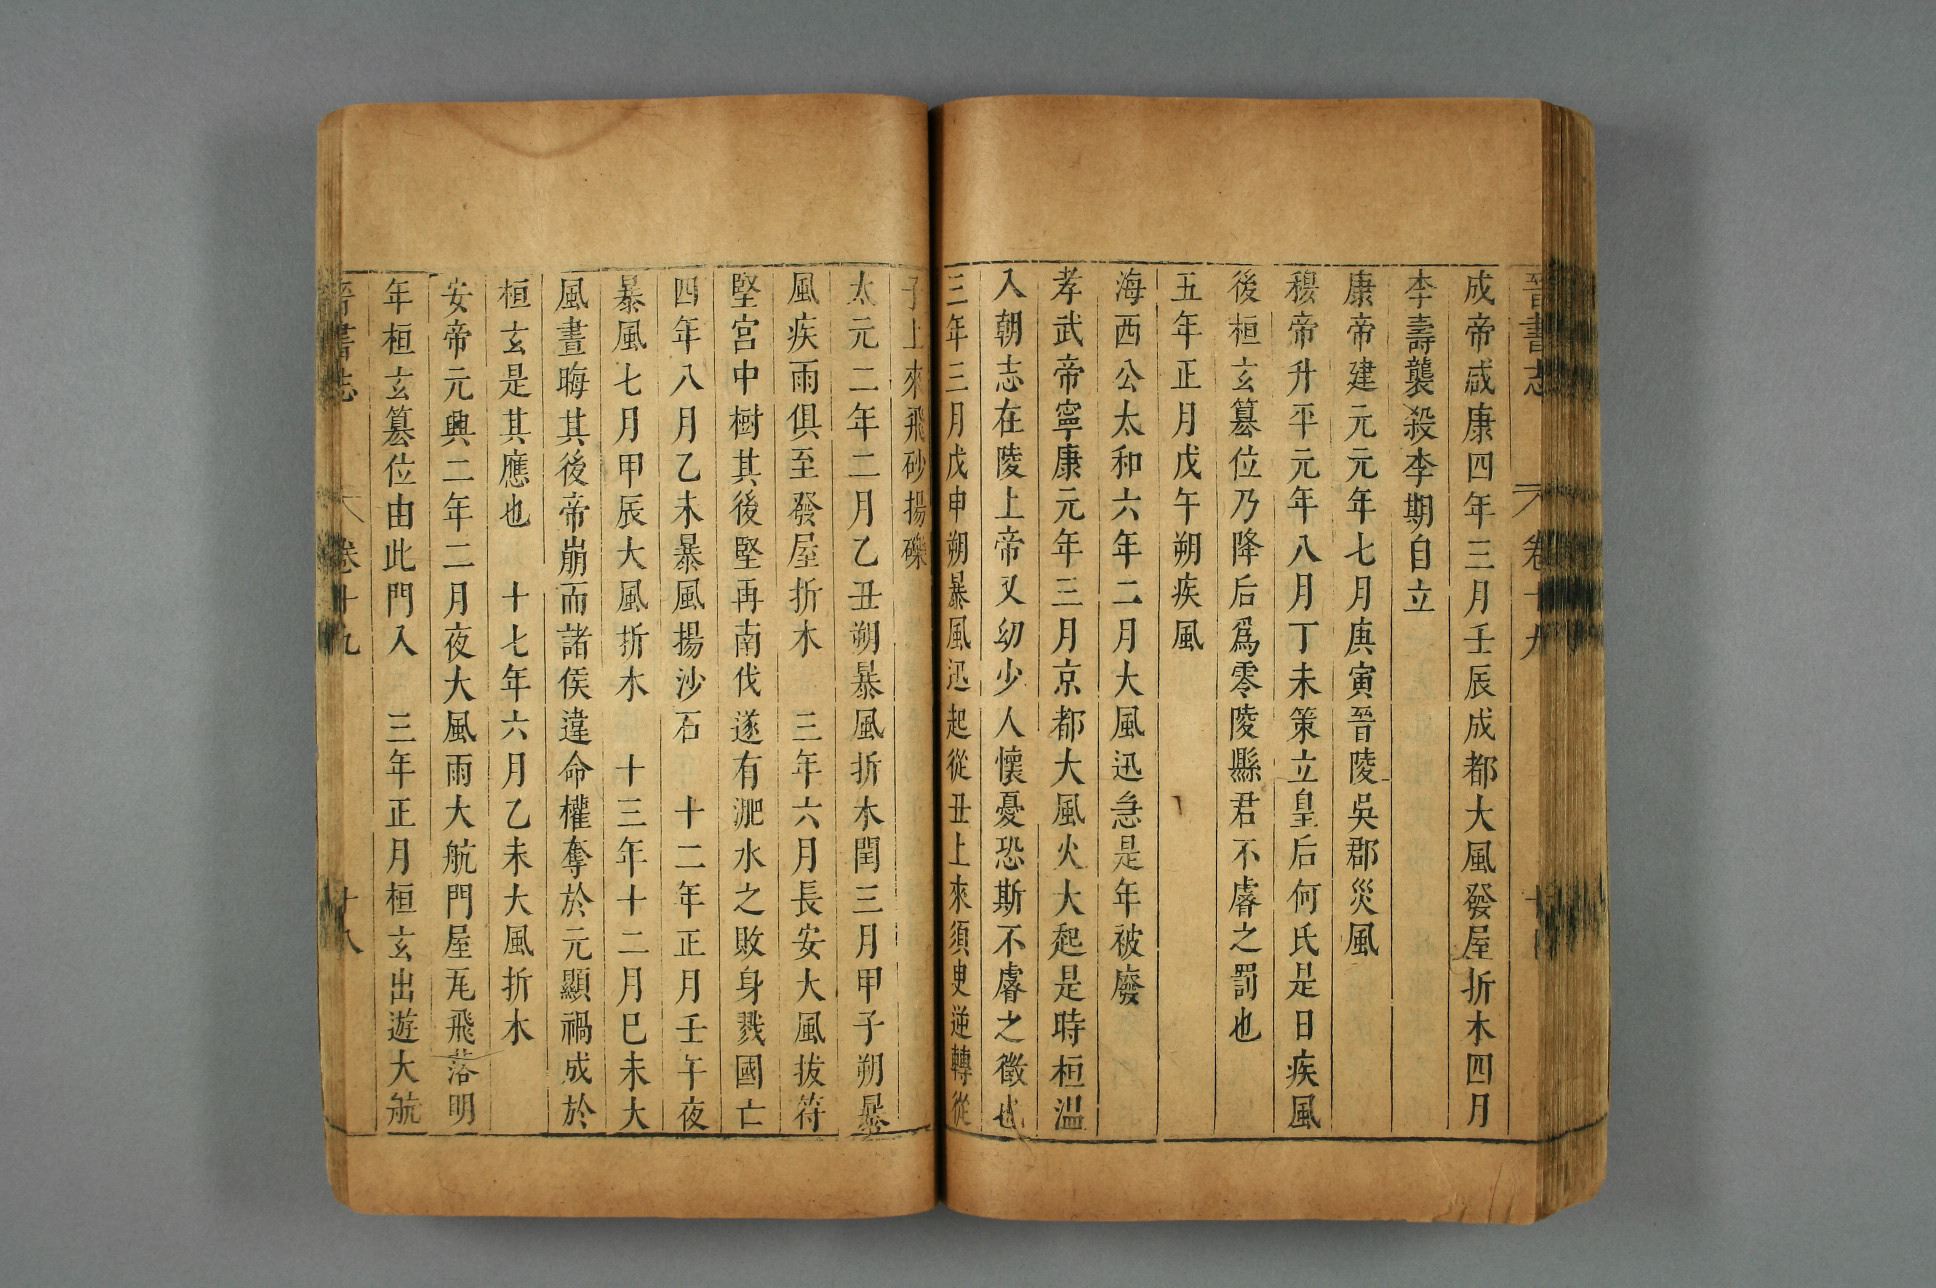 晉書志 卷十九
成帝咸康四年三月壬辰成都大風發屋折木四月
李壽襲殺李期自立
康帝建元元年七月庚寅晉陵吳郡災風
穆帝升平元年八月丁未策立皇后何氏是日疾風
後桓玄篡位乃降后爲零陵縣君不睿之罰也
五年正月戊午朔疾風
海西公太和六年二月大風迅急是年被廢
孝武帝寧康元年三月京都大風火大起是時桓溫
入朝志在陵上帝又幼少人懷憂恐斯不睿之徵也
三年三月戊申朔暴風迅起從丑上來須臾逆轉從
子上來飛砂揚礫
太元二年二月乙丑朔暴風折木閏三月甲子朔暴
風疾雨俱至發屋折木 三年六月長安大風拔苻
堅宮中樹其後堅再南伐遂有淝水之敗身戮國亡
四年八月乙未暴風揚沙石 十二年正月壬午夜
暴風七月甲辰大風折木 十三年十二月巳未大
風晝晦其後帝崩而諸侯違命權奪於元顯禍成於
桓玄是其應也 十七年六月乙未大風折木
安帝元興二年二月夜大風雨大航門屋瓦飛落明
年桓玄篡位由此門入 三年正月桓玄出遊大航
晉書志 卷十九 十八